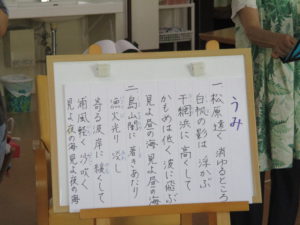 うみ
一 松原遠く 消ゆるところ
白帆の影は 浮かぶ
干網浜に 高くして
かもめは低く 波に飛ぶ
見よ昼の海 見よ昼の海
二 島山闇に 著きあたり
漁火光り 淡し
寄る波岸に 緩くして
浦風軽く 沙吹く
見よ夜の海 見よ夜の海